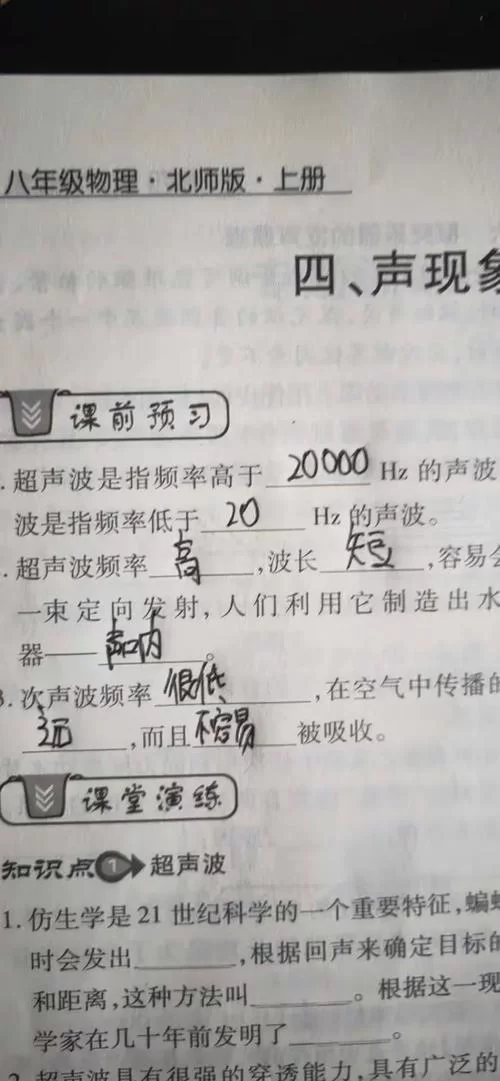 八年级物理·北师版·上册
四、声现象
课前预习
.超声波是指频率高于 20000 Hz 的声波
波是指频率低于 20 Hz 的声波。
.超声波频率 高 ,波长 短 ,容易会
一束定向发射,人们利用它制造出水
器—— 声内 。
3.次声波频率 很低 ,在空气中传播的
远 ,而且 不容易 被吸收。
课堂演练
知识点 1 超声波
1.仿生学是 21 世纪科学的一个重要特征,蝙蝠
时会发出______,根据回声来确定目标的
和距离,这种方法叫______。根据这一现
学家在几十年前发明了______。
2.超声波具有很强的穿透能力,具有广泛的